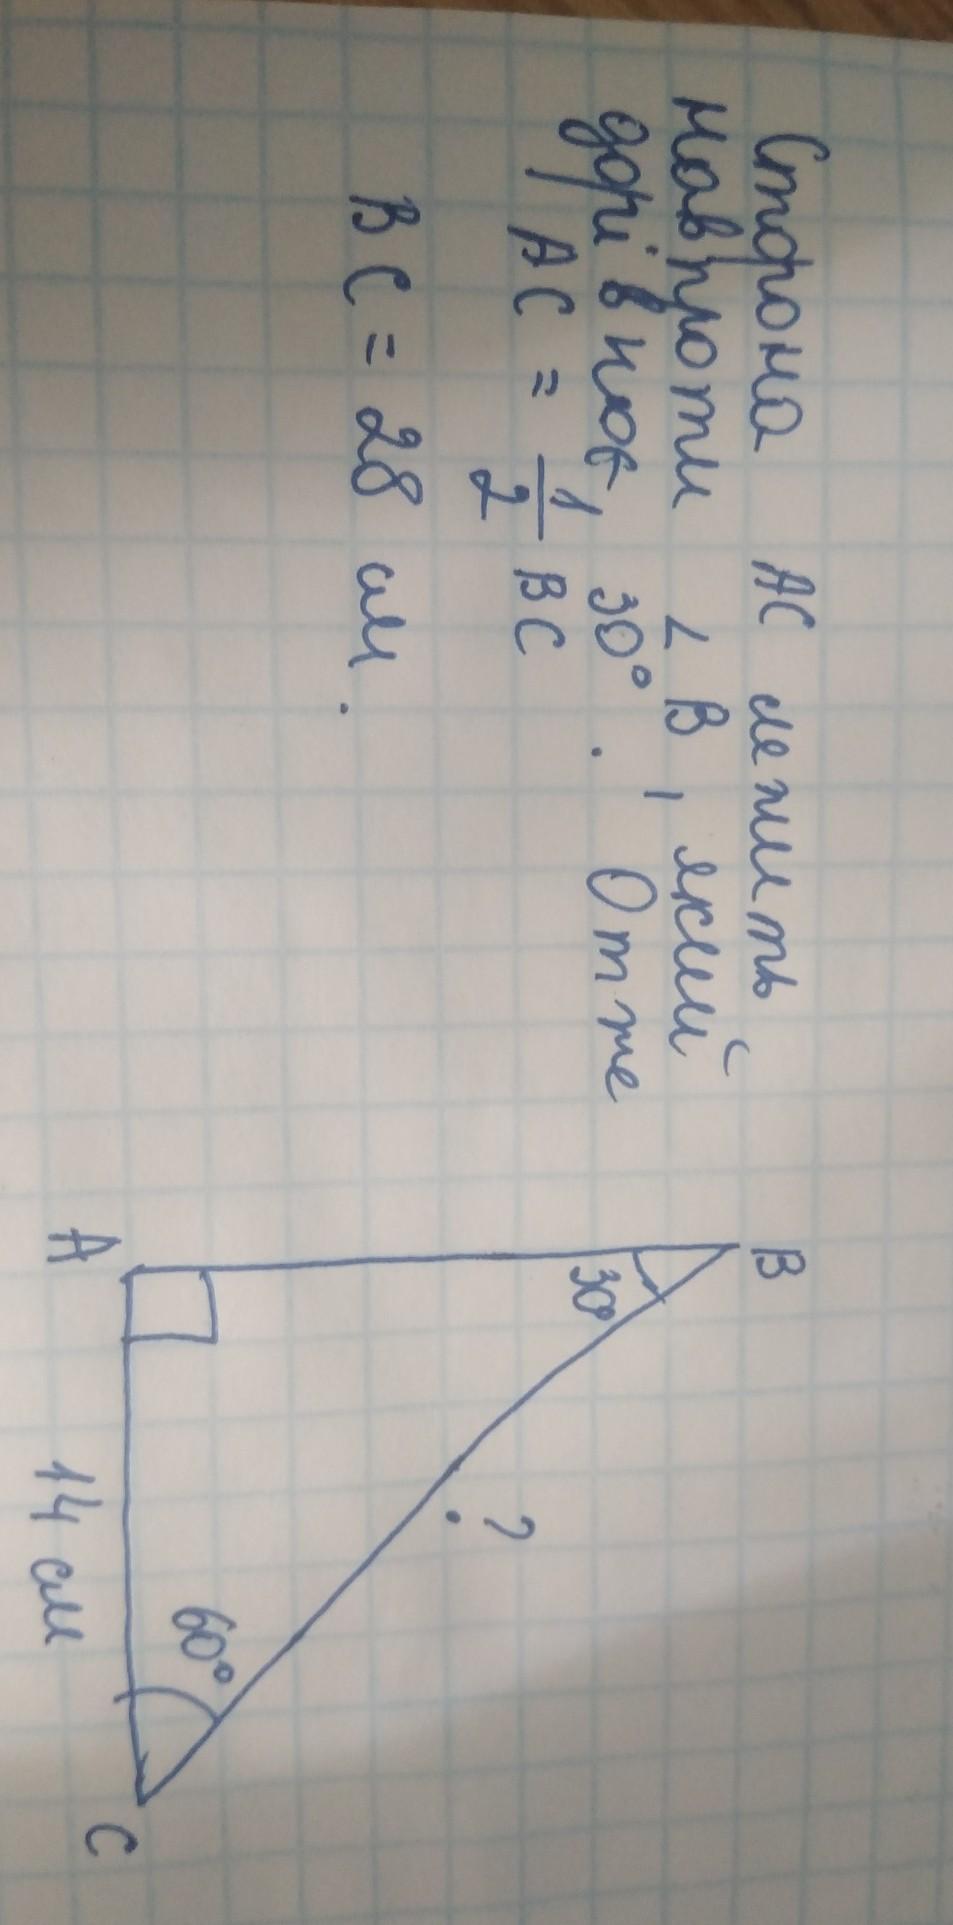 Сторона AC лежить
навпроти ∠B, який
дорівнює 30°. Отже
AC = 1/2 BC
BC = 28 см.
B
30°
?
60°
A
14 см
C